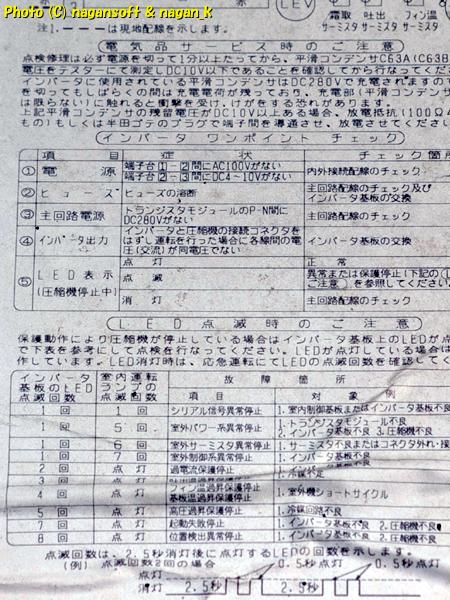 Photo (C) nagansoft & nagan_k
LEV
霜取 吐出 フィン温
サーミスタ サーミスタ サーミスタ
注1.ーーーは現地配線を示します。
電気品サービス時のご注意
点検修理は必ず電源を切って1分以上たってから、平滑コンデンサC63A(C63B
電圧をテスターにて測定しDC10V以下であることを確認してから行なってくださ
インバータに使用されている平滑コンデンサはDC280Vで充電されますので
を切ってもしばらくの間は充電電荷が残っており、充電部(平滑コンデンサ
は限らない)に触れると衝撃を受け、けがをする恐れがあります。
上記平滑コンデンサの残留電圧がDC10V以上ある場合、放電抵抗(100Ω4
もの)もしくは半田ゴテのプラグで端子間を導通させ、放電させてください
インバータ ワンポイント チェック
項目 症状 チェック箇所
① 電源 端子台1-2間にAC100Vがない 内外接続配線のチェック
端子台2-3間にDC4~10Vがない
② ヒューズ ヒューズの溶断 主回路配線のチェック及び
インバータ基板の交換
③ 主回路電源 トランジスタモジュールのP-N間に 主回路配線のチェック
DC280Vがない
④ インバータ出力 インバータと圧縮機の接続コネクタを インバータ基板の交換
はずし運転を行った場合に各線間の電
圧(交流)が同電圧でない
⑤ LED表示 点灯 正常
(圧縮機停止中) 点滅 異常または保護停止(下記のL
ご注意)を参照してください。
消灯 主回路配線のチェック
LED点滅時のご注意
保護動作により圧縮機が停止している場合はインバータ基板上のLEDが点
で下表を参考にして点検を行なってください。LEDが点灯している場合は
作しています。LED消灯時は、応急運転にてLEDの点滅回数を確認してく
インバータ基板のLED点滅回数 室内運転ランプの点滅回数 故障箇所
項目 対象例
1回 1回 シリアル信号異常停止 1.室内制御基板またはインバータ基板不良
1回 5回 室外パワー系異常停止 1.トランジスタモジュール不良
2.インバータ基板不良 3.圧縮機不良
1回 6回 室外サーミスタ異常停止 1.サーミスタ不良またはコネクタ外れ・接
1回 7回 室外制御系異常停止 1.インバータ基板不良
2回 点灯 過電流保護停止
3回 点灯
4回 点灯 フィン温過昇保護停止 1.室外機ショートサイクル
基板温過昇保護停止
5回 点灯 高圧過昇保護停止 1.冷媒回路不良
7回 点灯 起動失敗停止 1.インバータ基板不良 2.圧縮機不良
8回 点灯 位置検出異常停止 1.インバータ基板不良 2.圧縮機不良
点滅回数は、2.5秒消灯後に点灯するLEDの回数を示します。
(例) 点滅回数2回の場合 0.5秒点灯 0.5秒点灯
点灯
消灯 2.5秒 2.5秒